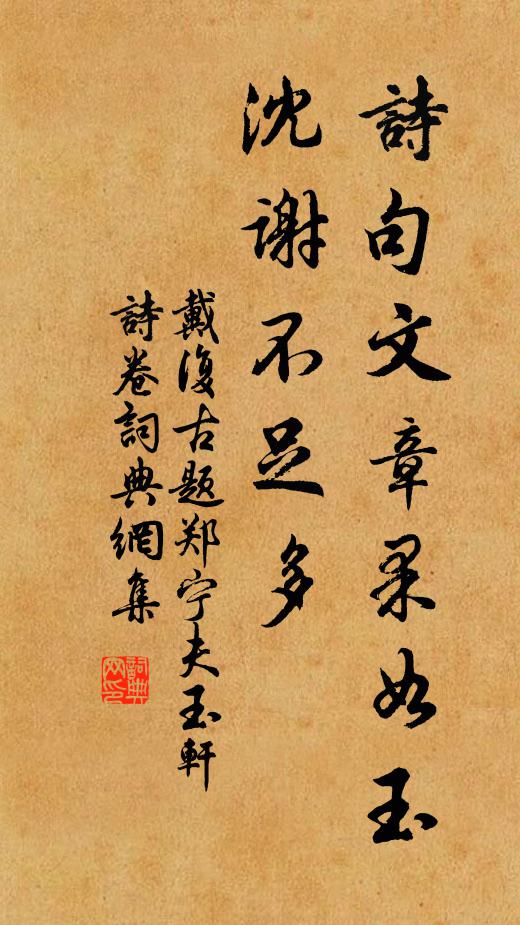 詩句文章果如玉
沈谢不足多
戴復古题郑宁夫玉軒
詩卷詞典網集
詞典
网印